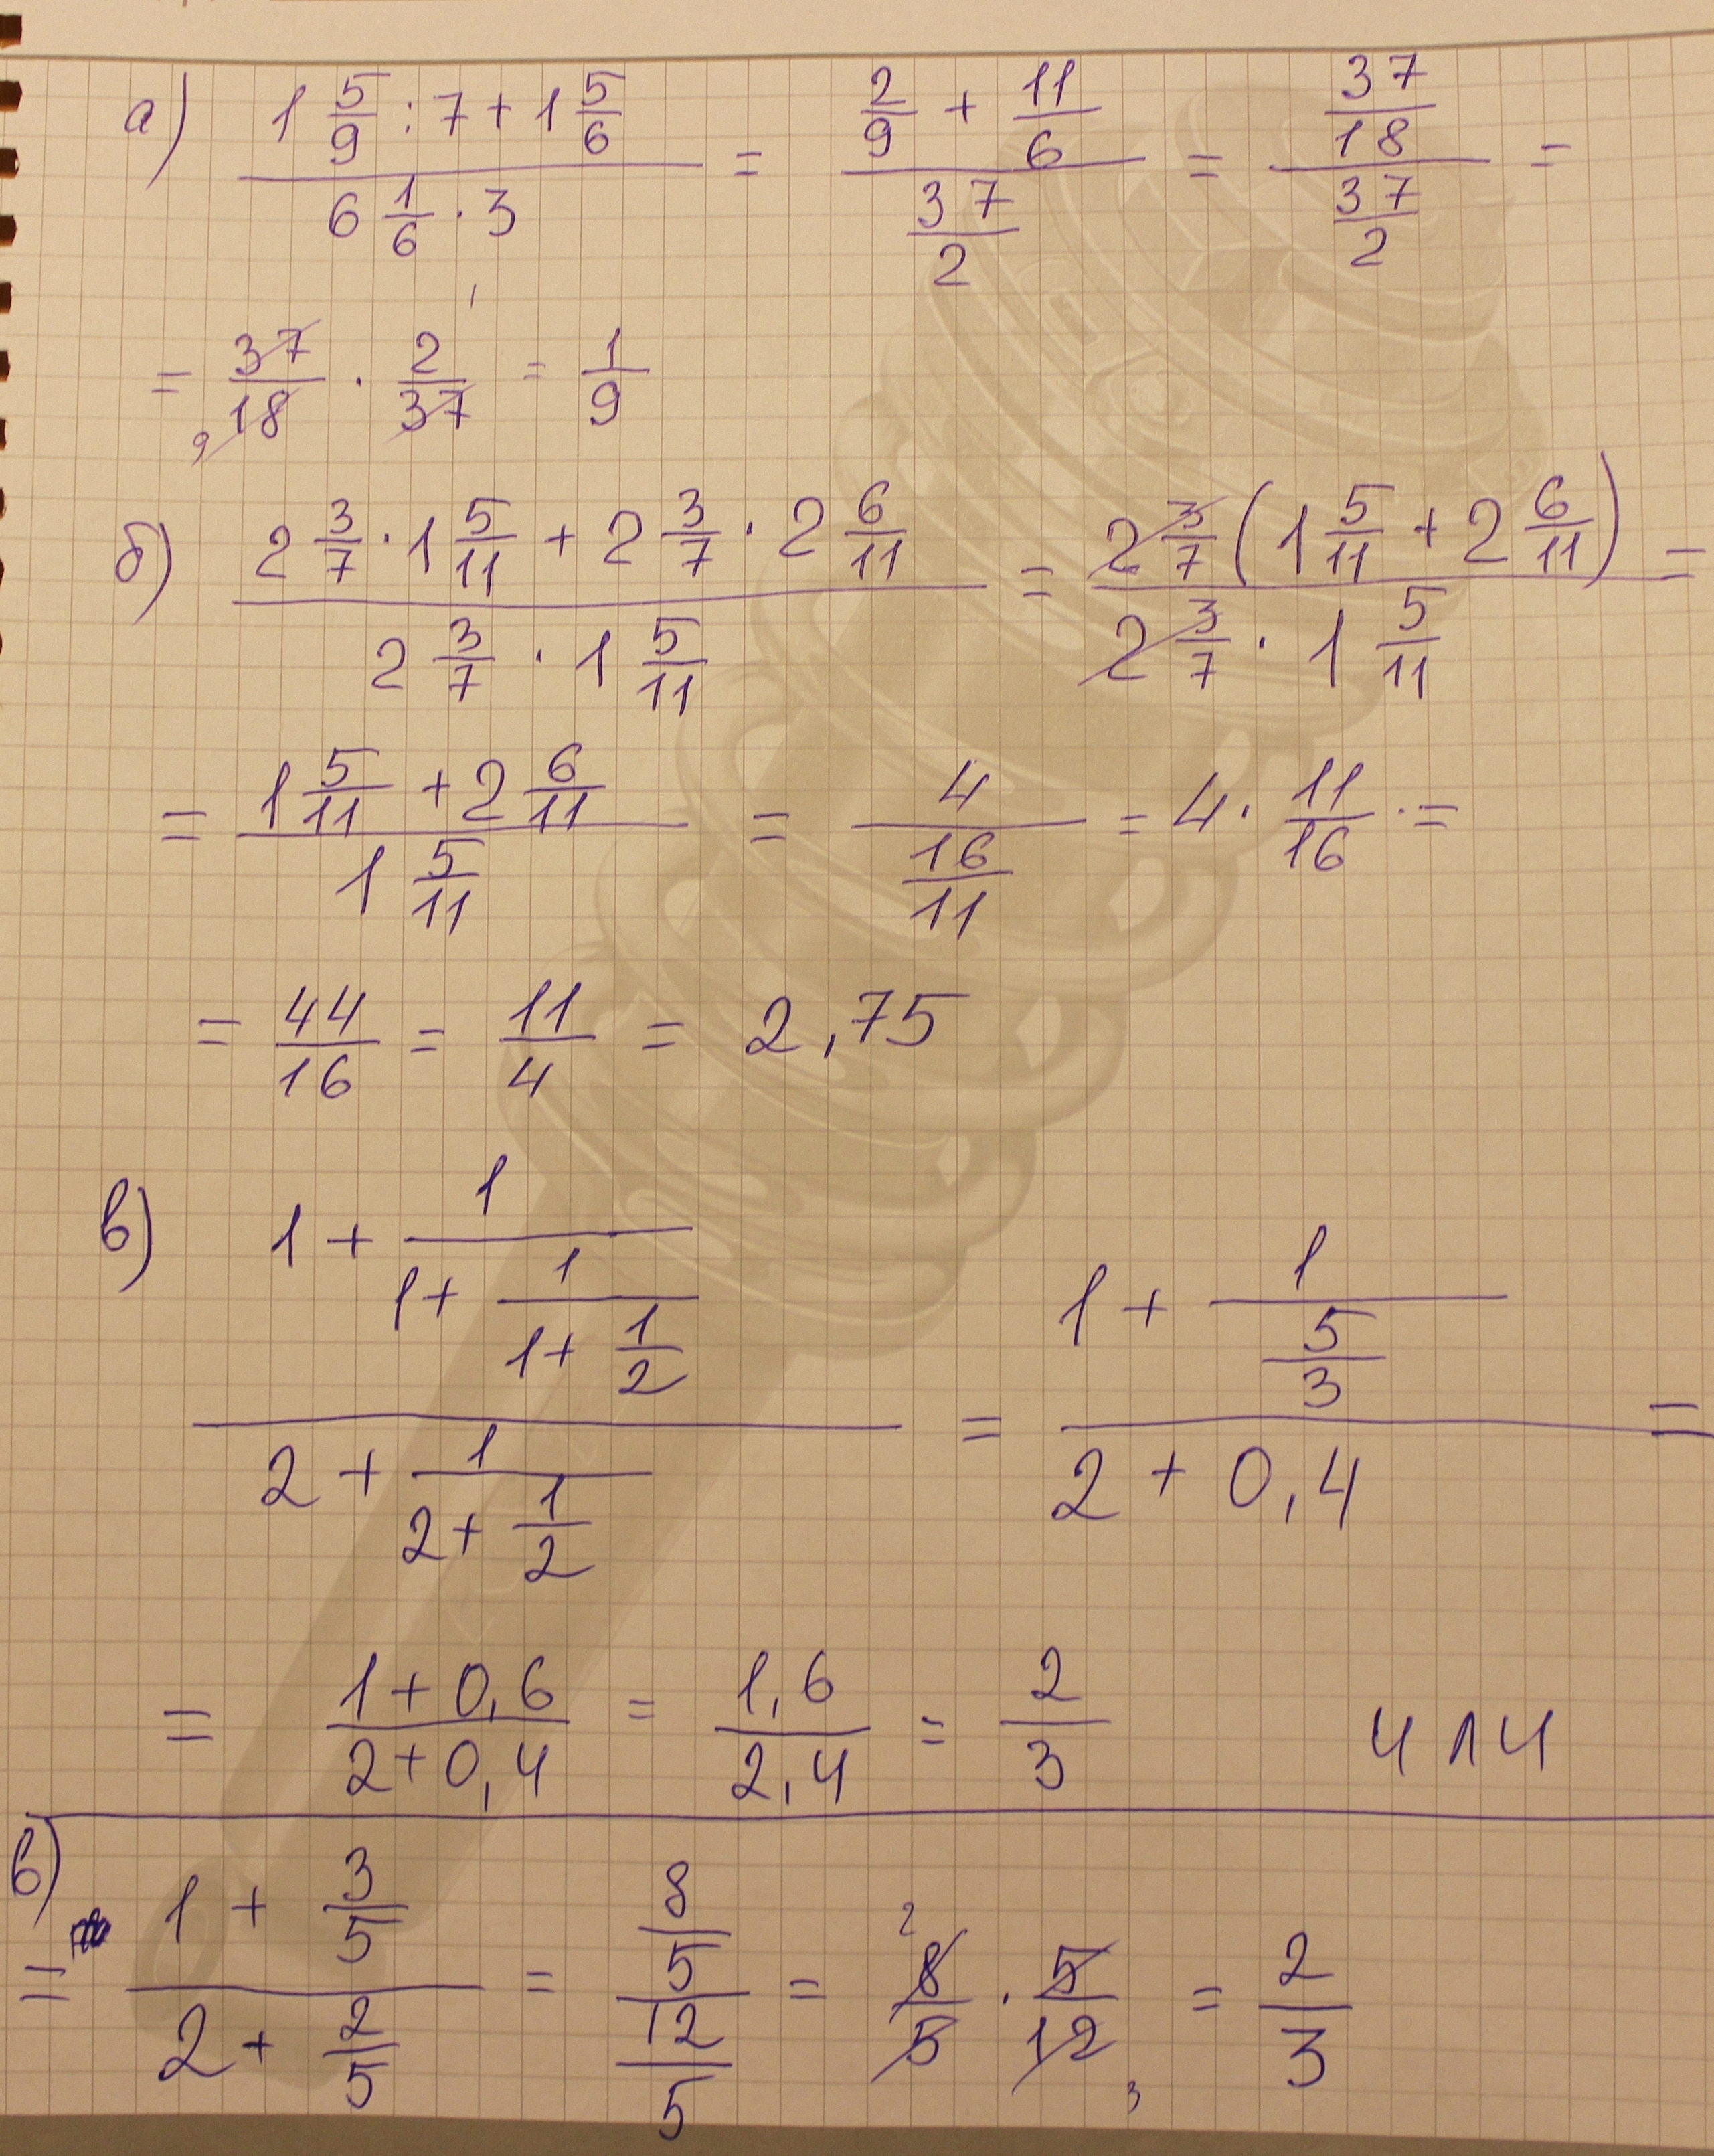 а) (1 5/9 : 7 + 1 5/6) / (6 1/6 · 3) = (2/9 + 11/6) / (37/2) = (37/18) / (37/2) =
= 37/18 · 2/37 = 1/9
б) (2 3/7 · 1 5/11 + 2 3/7 · 2 6/11) / (2 3/7 · 1 5/11) = (2 3/7 (1 5/11 + 2 6/11)) / (2 3/7 · 1 5/11) =
= (1 5/11 + 2 6/11) / (1 5/11) = 4 / (16/11) = 4 · 11/16 · =
= 44/16 = 11/4 = 2,75
в) (1 + 1/(1 + 1/(1 + 1/2))) / (2 + 1/(2 + 1/2)) = (1 + 1/(5/3)) / (2 + 0,4) =
= (1 + 0,6)/(2 + 0,4) = 1,6/2,4 = 2/3 или
в) = (1 + 3/5) / (2 + 2/5) = (8/5) / (12/5) = 8/5 · 5/12 = 2/3